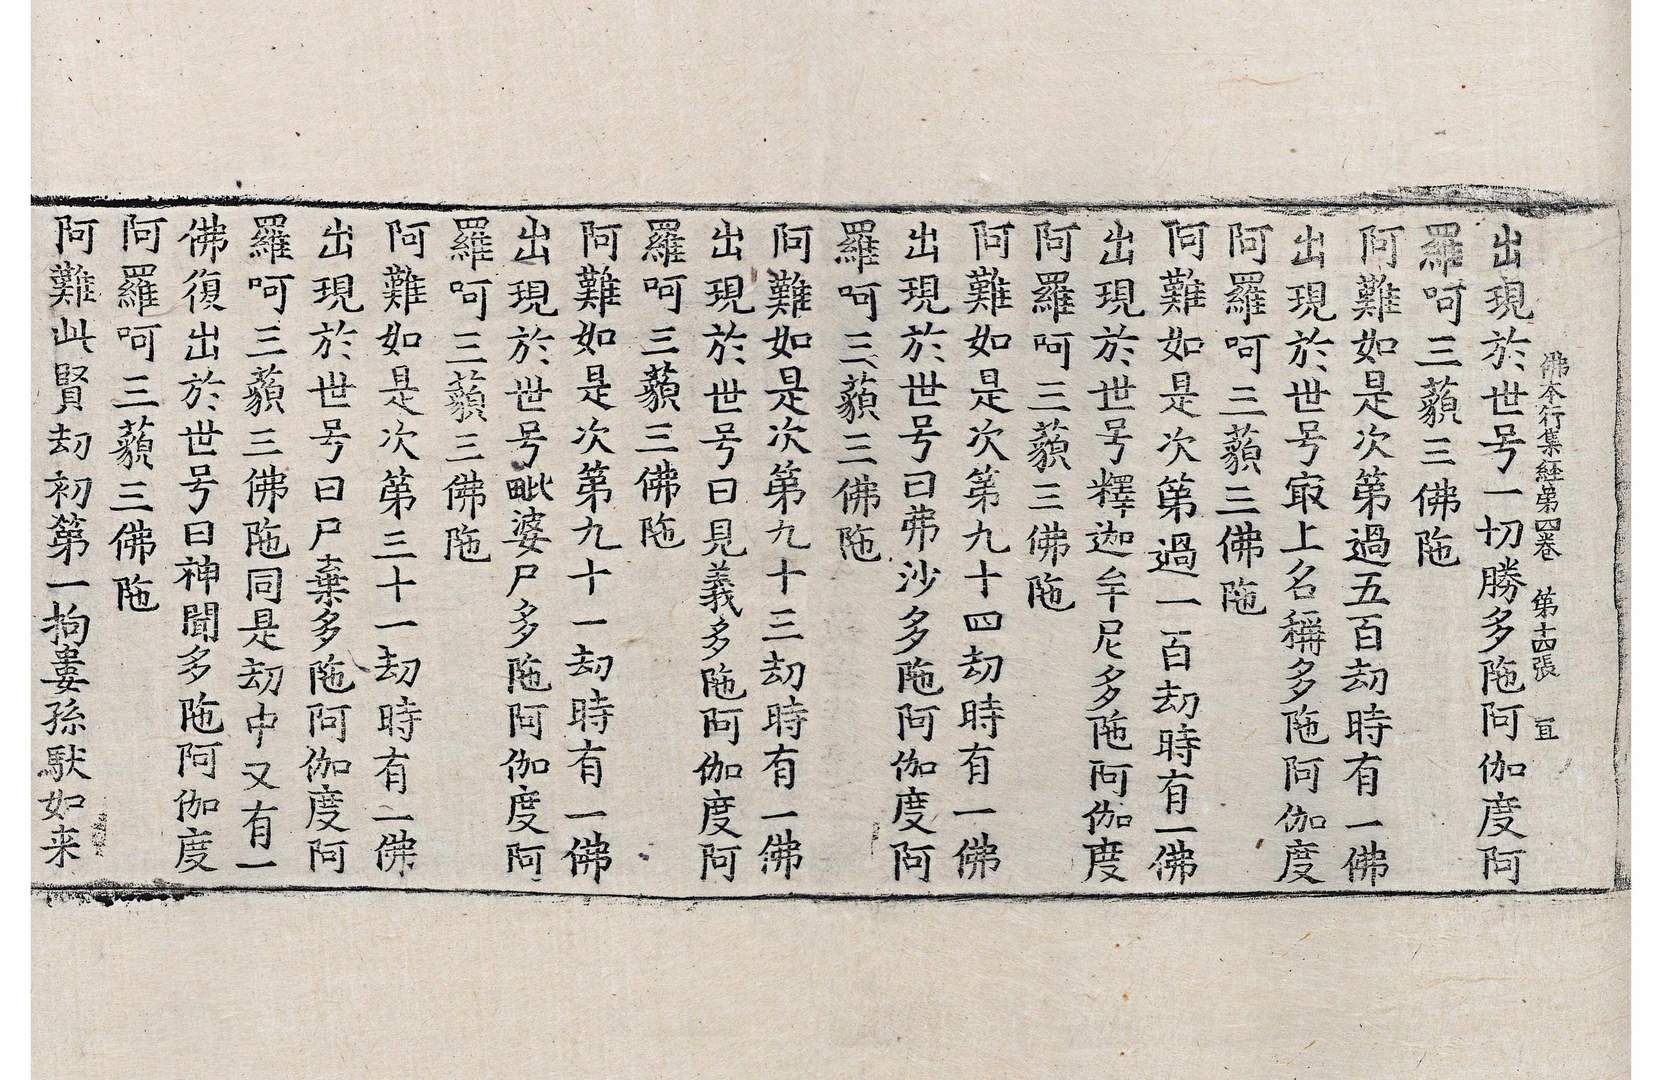 佛本行集經第四卷　第十四張　宜
出現於世号一切勝多陁阿伽度阿
羅呵三藐三佛陁
阿難如是次第過五百劫時有一佛
出現於世号㝡上名稱多陁阿伽度
阿羅呵三藐三佛陁
阿難如是次第過一百劫時有一佛
出現於世号釋迦牟尼多陁阿伽度
阿羅呵三藐三佛陁
阿難如是次第九十四劫時有一佛
出現於世号曰弗沙多陁阿伽度阿
羅呵三藐三佛陁
阿難如是次第九十三劫時有一佛
出現於世号曰見義多陁阿伽度阿
羅呵三藐三佛陁
阿難如是次第九十一劫時有一佛
出現於世号毗婆尸多陁阿伽度阿
羅呵三藐三佛陁
阿難如是次第三十一劫時有二佛
出現於世号曰尸棄多陁阿伽度阿
羅呵三藐三佛陁同是劫中又有一
佛復出於世号曰神聞多陁阿伽度
阿羅呵三藐三佛陁
阿難此賢劫初第一拘婁孫馱如来